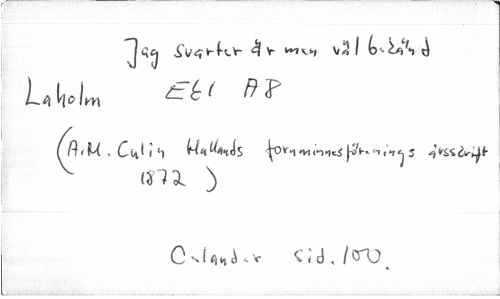 Jag svarter är men väl bekänd
Laholm Etl AB
(A.M. Culin Hallands fornminnesförenings årsskrift
1872)
Celander sid. 100.